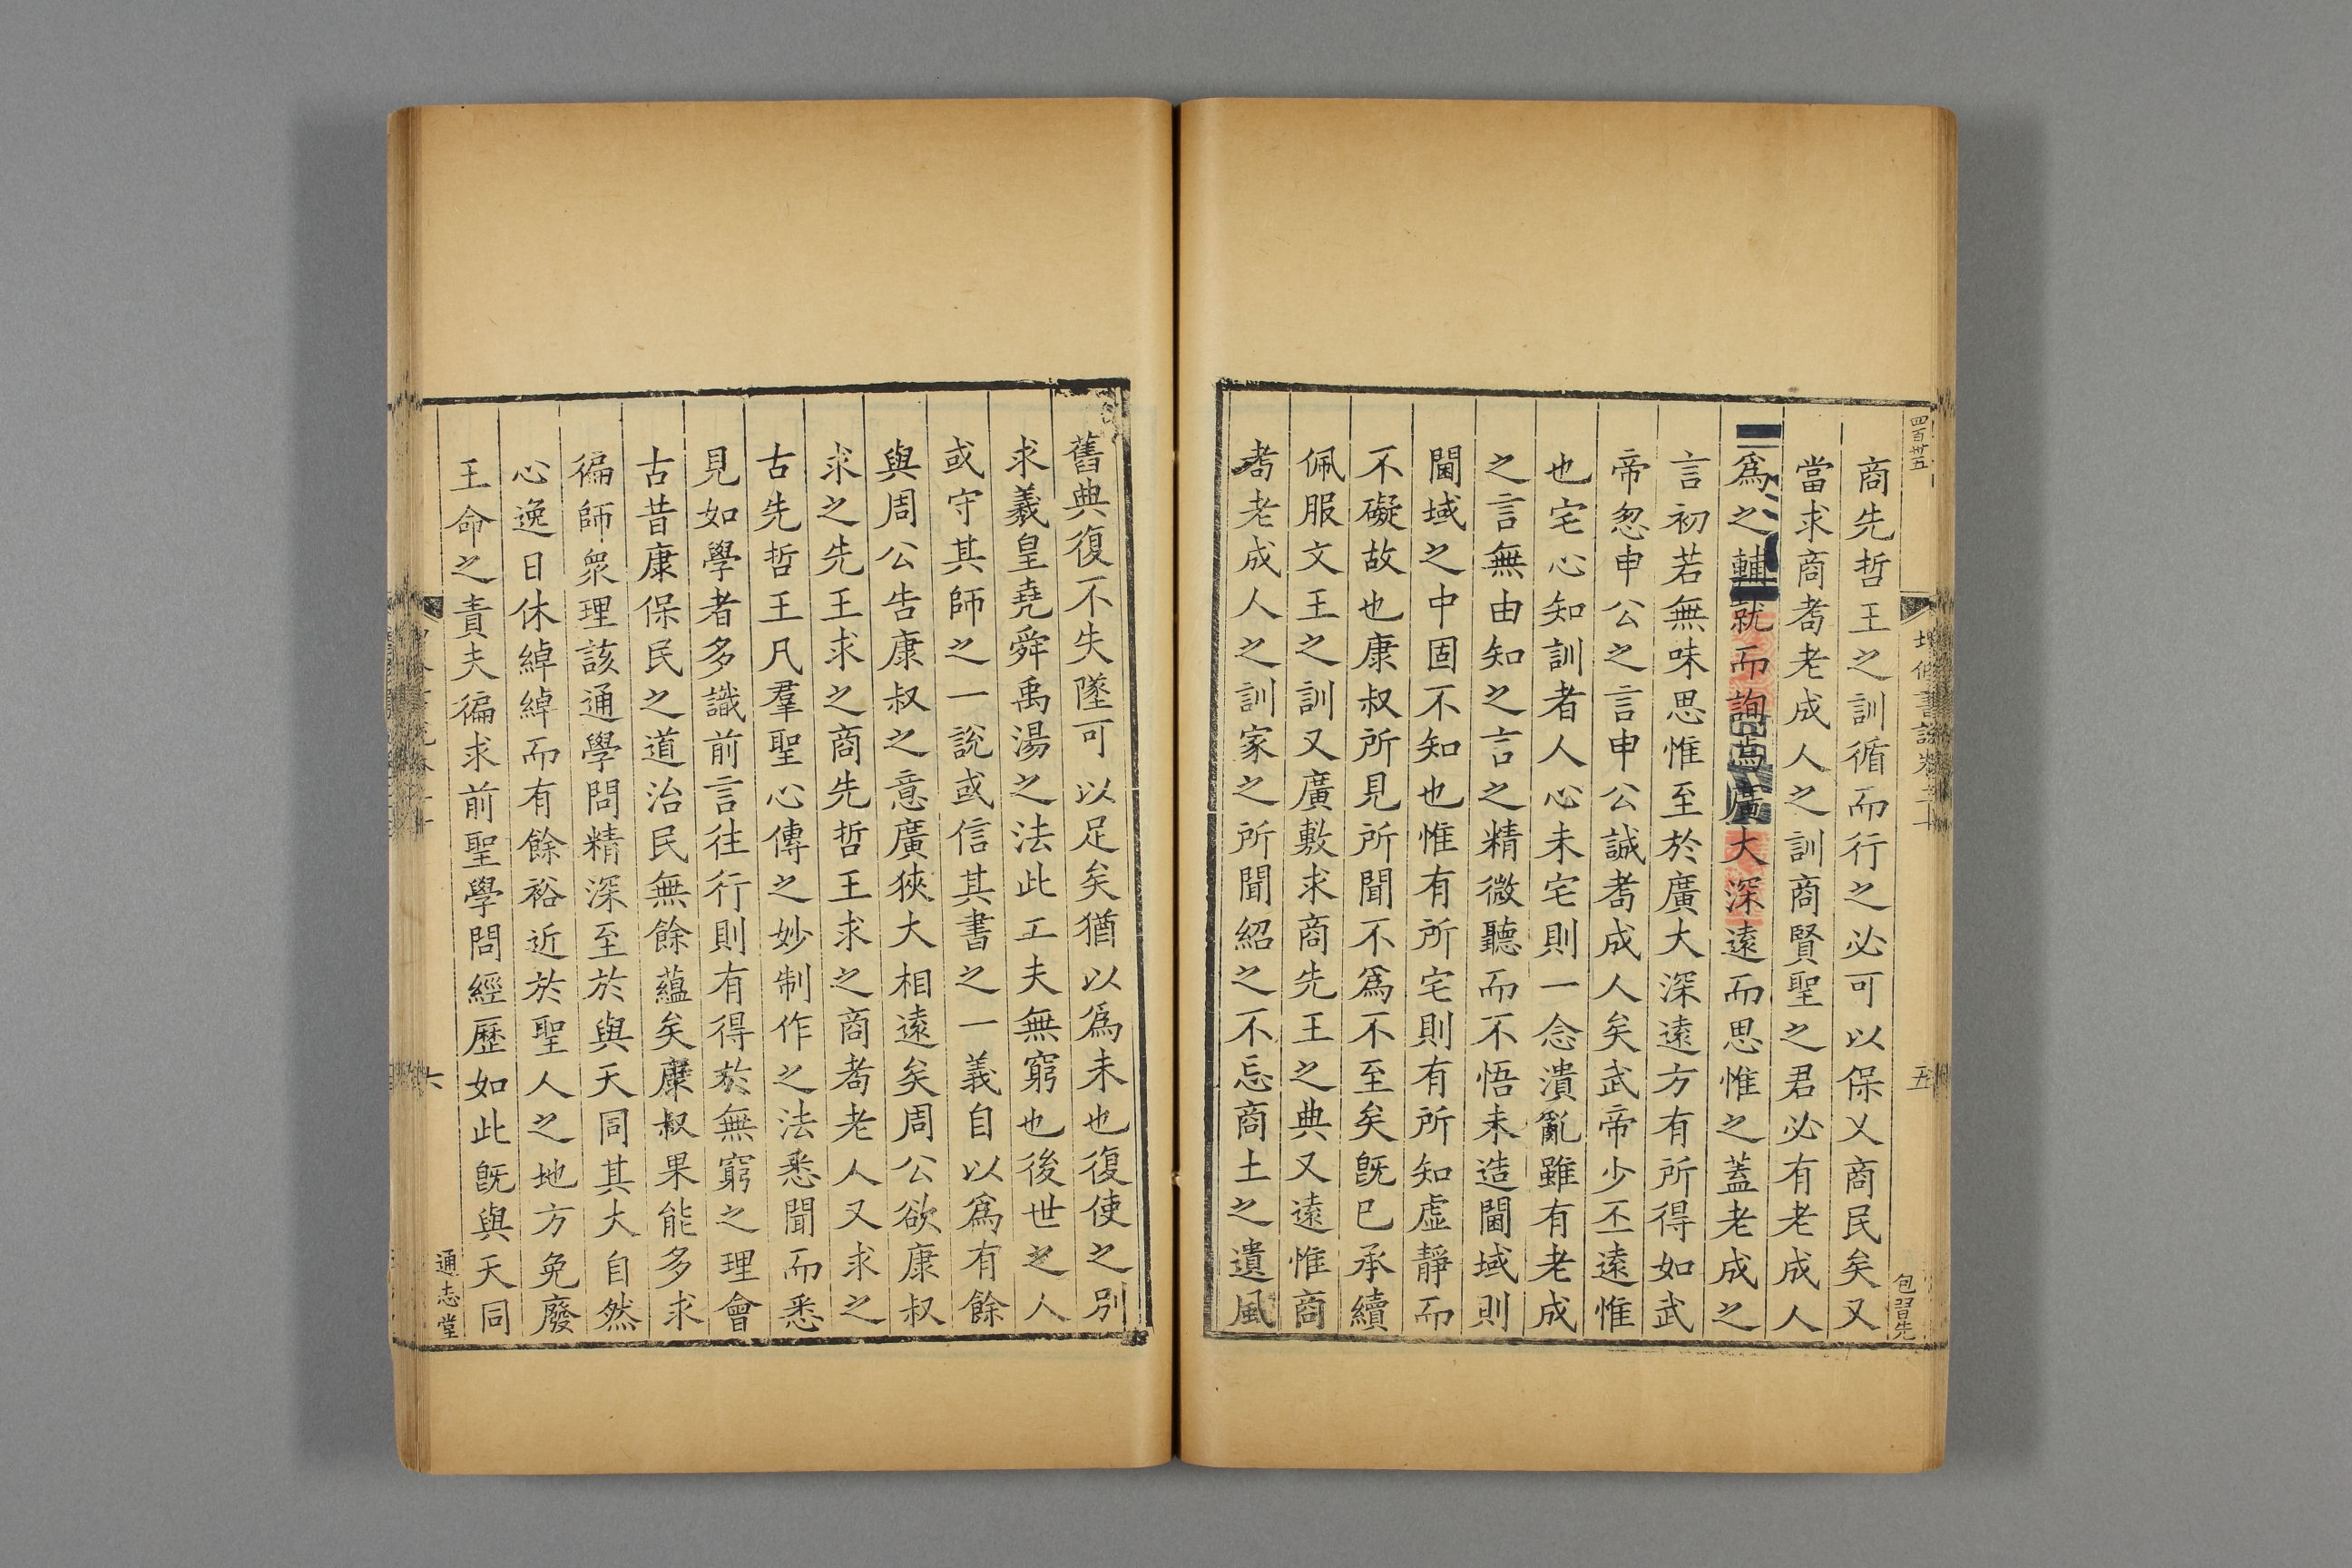 四百卅五
五
包習先
商先哲王之訓循而行之必可以保乂商民矣又
當求商耉老成人之訓商賢聖之君必有老成人
爲之輔就而詢焉廣大深遠而思惟之蓋老成之
言初若無味思惟至於廣大深遠方有所得如武
帝忽申公之言申公誠耉成人矣武帝少丕遠惟
也宅心知訓者人心未宅則一念潰亂雖有老成
之言無由知之言之精微聽而不悟未造閫域則
閫域之中固不知也惟有所宅則有所知虛靜而
不礙故也康叔所見所聞不爲不至矣旣巳承續
佩服文王之訓又廣敷求商先王之典又遠惟商
耉老成人之訓家之所聞紹之不忘商土之遺風
舊典復不失墜可以足矣猶以爲未也復使之別
求羲皇堯舜禹湯之法此工夫無窮也後世之人
或守其師之一說或信其書之一義自以爲有餘
與周公告康叔之意廣狹大相遠矣周公欲康叔
求之先王求之商先哲王求之商耉老人又求之
古先哲王凡羣聖心傳之妙制作之法悉聞而悉
見如學者多識前言往行則有得於無窮之理會
古昔康保民之道治民無餘蘊矣康叔果能多求
徧師衆理該通學問精深至於與天同其大自然
心逸日休綽綽而有餘裕近於聖人之地方免廢
王命之責夫徧求前聖學問經歷如此旣與天同
六
通志堂